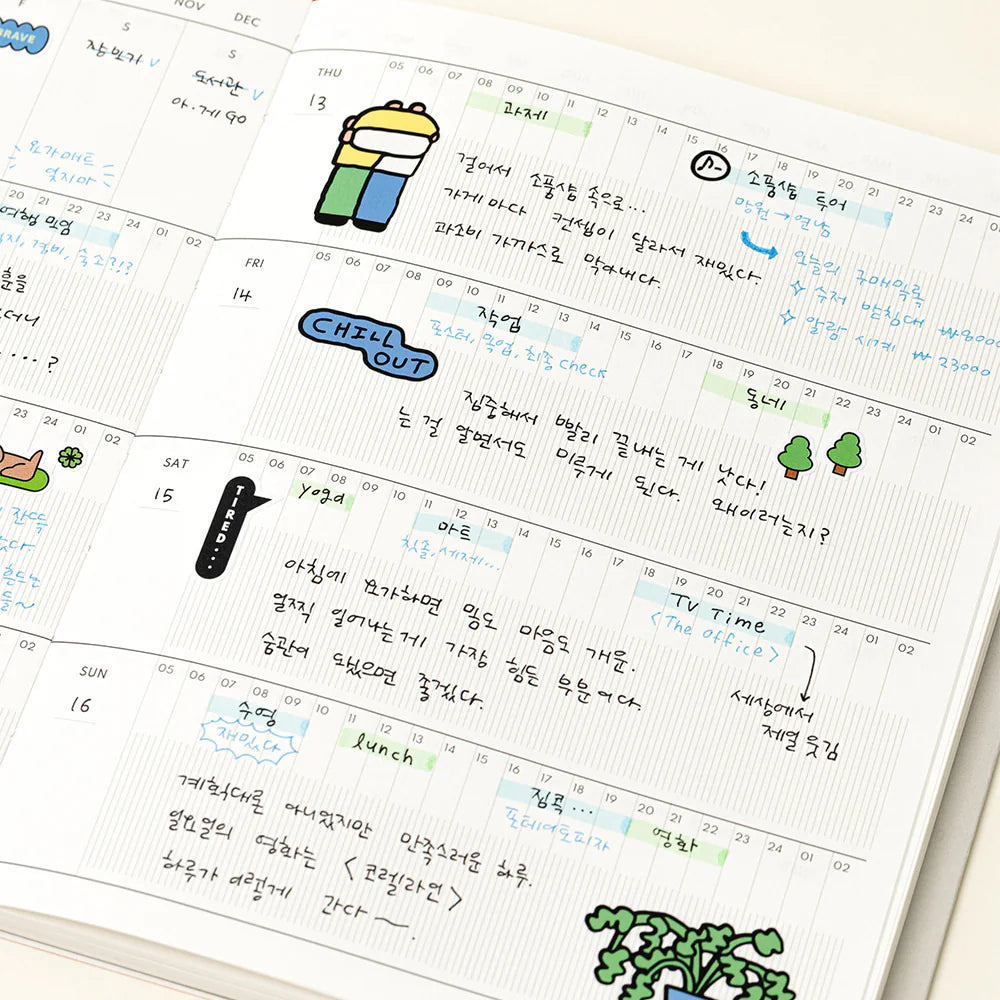 NOV DEC
BRAVE
S
S
V
도서관 V
아·게 GO
요가매트
잊지마
20 21 22 23 24 01 02
여행 모임
23 24 01 02
02
THU
13
05 06 07 08 09 10 11 12 13 14 15 16 17 18 19 20 21 22 23 24
과제
걸어서 소품샵 속으로...
가게마다 컨셉이 달라서 재밌다.
과소비 가까스로 막아내다.
소품샵 투어
망원 → 연남
오늘의 구매목록
수저 받침대 ₩8000
알람 시계 ₩23000
FRI
14
05 06 07 08 09 10 11 12 13 14 15 16 17 18 19 20 21 22 23 24 01 02
CHILL
OUT
작업
포스터, 목업, 최종 check
동네
집중해서 빨리 끝내는 게 낫다!
는 걸 알면서도 미루게 된다. 왜이러는지?
SAT
15
05 06 07 08 09 10 11 12 13 14 15 16 17 18 19 20 21 22 23 24 01 02
TIRED...
yoga
마트
칫솔, 세제...
TV Time
<The office>
아침에 요가하면 몸도 마음도 개운.
일찍 일어나는게 가장 힘든 부분이다.
습관이 되었으면 좋겠다.
세상에서
제일 웃김
SUN
16
05 06 07 08 09 10 11 12 13 14 15 16 17 18 19 20 21 22 23 24 01 02
수영
재밌다
lunch
집콕...
포테이토피자
영화
계획대론 아니었지만 만족스러운 하루.
일요일의 영화는 <코렐라인>
하루가 이렇게 간다~.